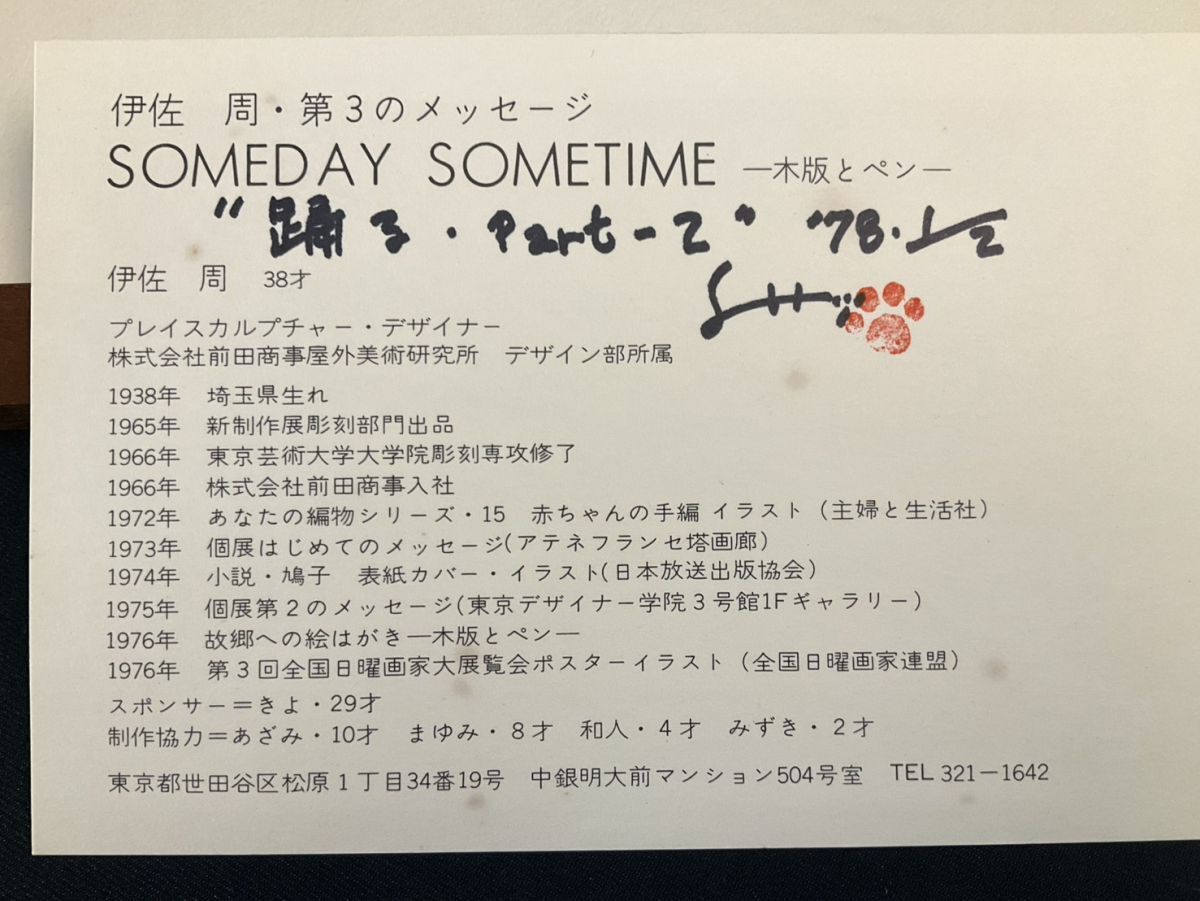 伊佐　周・第3のメッセージ
SOMEDAY SOMETIME —木版とペン—
“踊る・Part-2” '78.1/2
伊佐　周　38才
プレイスカルプチャー・デザイナー
株式会社前田商事屋外美術研究所　デザイン部所属
1938年　埼玉県生れ
1965年　新制作展彫刻部門出品
1966年　東京芸術大学大学院彫刻専攻修了
1966年　株式会社前田商事入社
1972年　あなたの編物シリーズ・15　赤ちゃんの手編 イラスト（主婦と生活社）
1973年　個展はじめてのメッセージ(アテネフランセ塔画廊)
1974年　小説・鳩子　表紙カバー・イラスト(日本放送出版協会)
1975年　個展第2のメッセージ(東京デザイナー学院3号館1Fギャラリー)
1976年　故郷への絵はがき—木版とペン—
1976年　第3回全国日曜画家大展覧会ポスターイラスト（全国日曜画家連盟）
スポンサー＝きよ・29才
制作協力＝あざみ・10才　まゆみ・8才　和人・4才　みずき・2才
東京都世田谷区松原1丁目34番19号　中銀明大前マンション504号室　TEL 321-1642